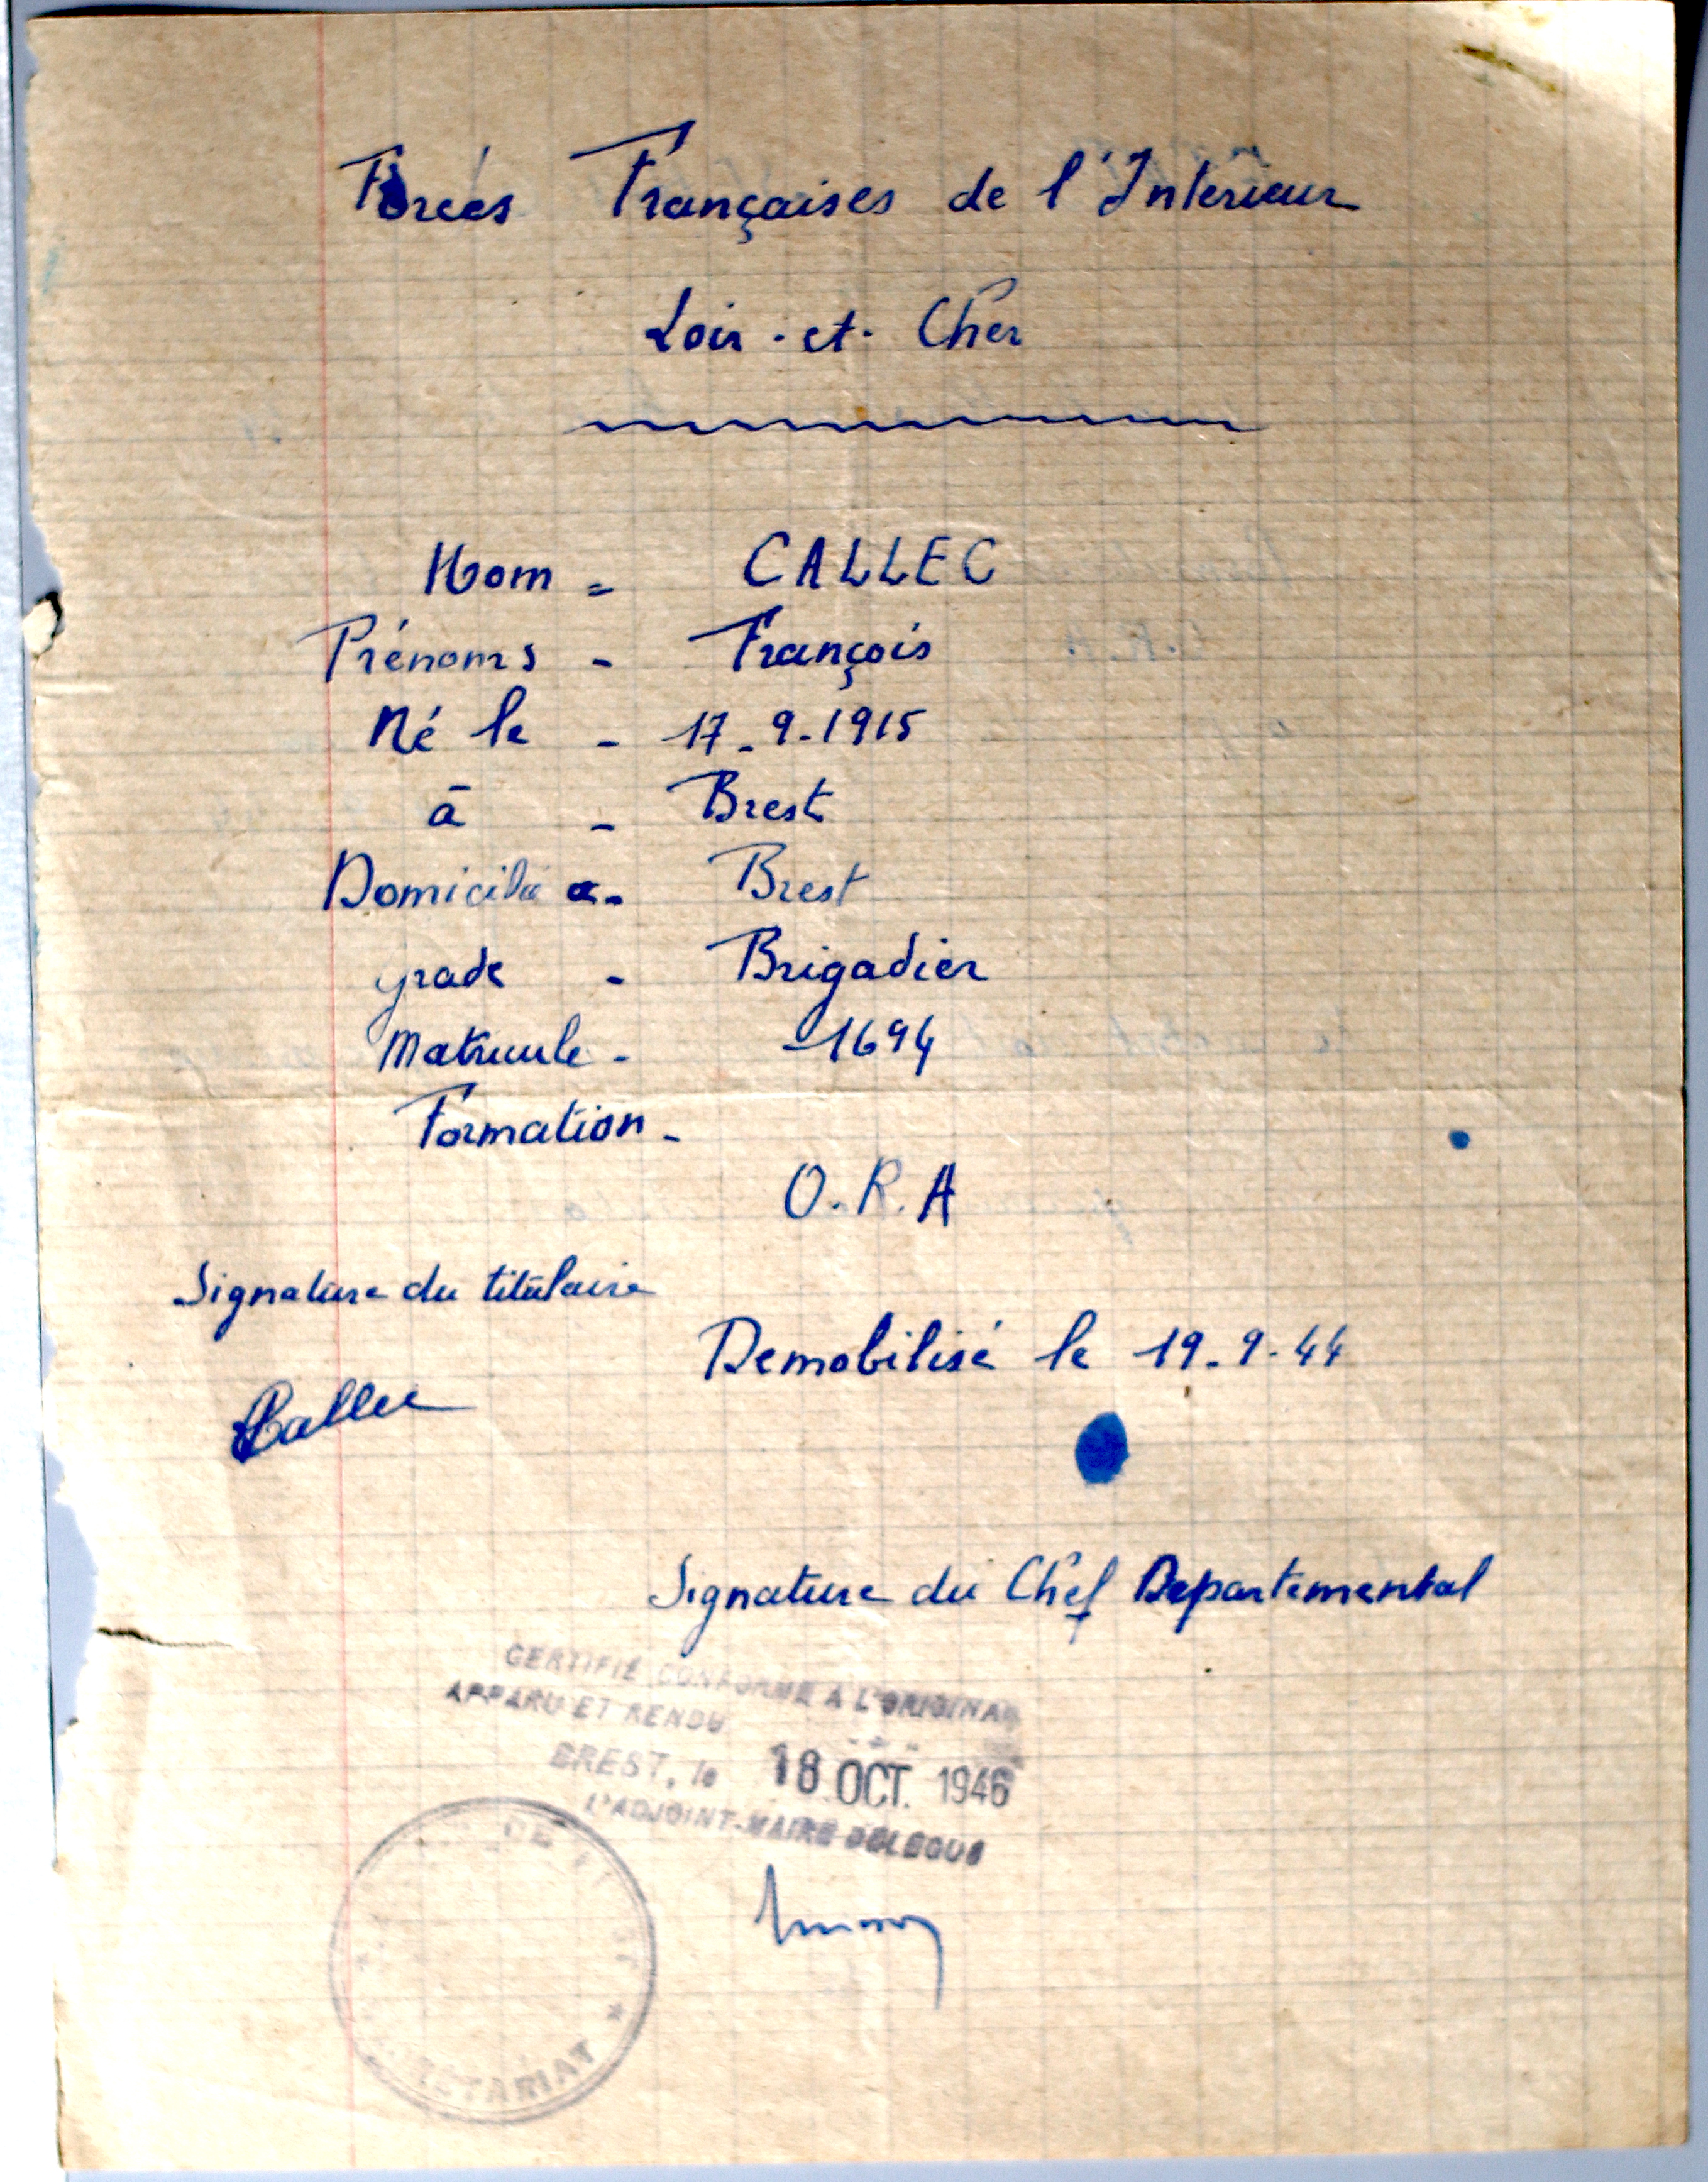 Forces Françaises de l'Intérieur
Loir-et-Cher
Nom = CALLEC
Prénoms - François
Né le - 17-9-1915
à - Brest
Domicilié à - Brest
grade - Brigadier
Matricule - 1694
Formation -
O.R.A
Signature du titulaire
Demobilisé le 19-9-44
Callec
Signature du Chef Departemental
CERTIFIÉ CONFORME A L'ORIGINAL
APPARU ET RENDU
BREST, le 18 OCT. 1946
L'ADJOINT-MAIRE DELEGUE
DE